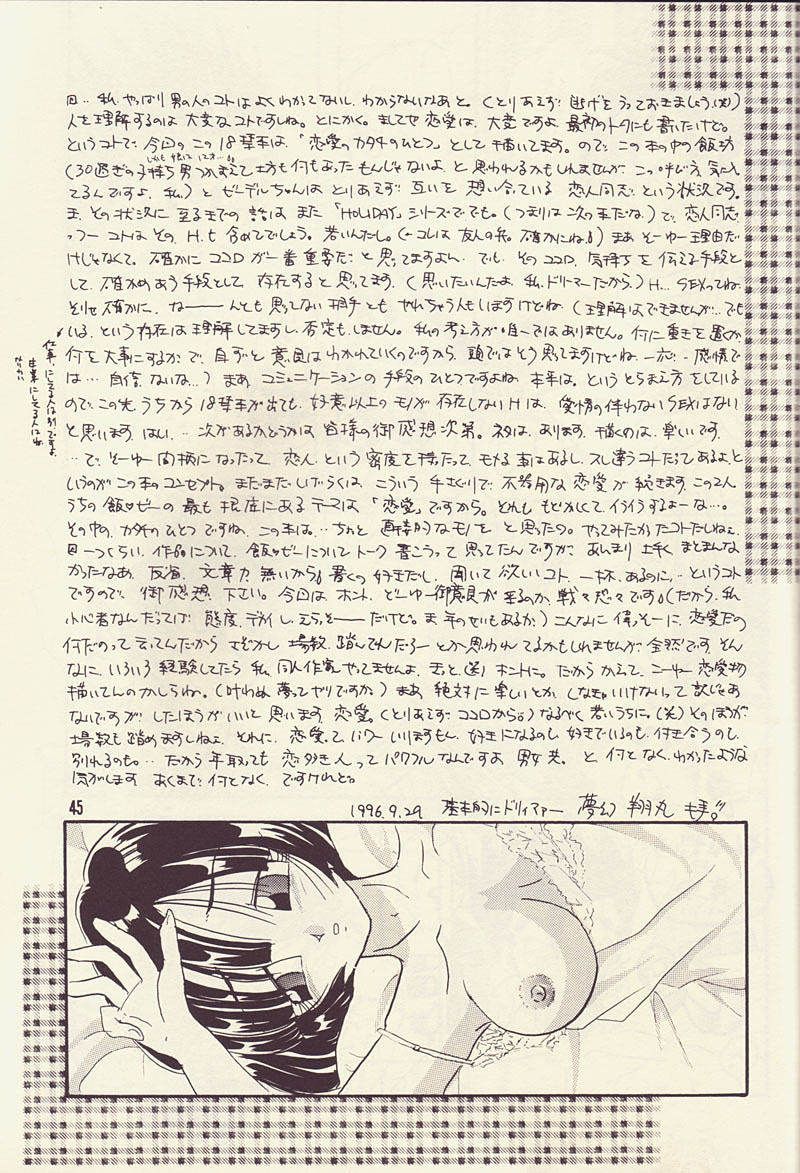 回‥私、やっぱり男の人のコトはよくわかってないし、わからないなあと。(とりあえず逃げをうっておきましょう(笑))
人を理解するのは大変なコトですしね。とにかく。ましてや恋愛は、大変ですよ、最初のトークにも書いたけど。
というコトで、今回のこの18禁本は、「恋愛のカタチのひとつ」として描いてます。ので、この本の中の飯坊
(30過ぎの子持ち男つかまえて坊も何もあったもんじゃないよ、と思われるかもしれませんが、この呼び方気に入っ
てるんですよ、私)とビーデルちゃんはとりあえず互いを想い合っている恋人同志という状況です。
ま、その状況に至るまでの話はまた「HOLIDAY」シリーズででも。(つまりは次の本だな)で、恋人同志
っつーコトはその、H、も含めてでしょう。若いんだし。(←コレは友人の弁。確かにね)まあそーゆー理由だ
けじゃなくて、確かにココロが一番重要だと思ってますよん。でも、そのココロ、気持ちを伝える手段と
して、確かめあう手段として存在すると思ってます。(思いたいんだよ、私、ドリーマーだから)H…SEXってね。
そりゃ確かに、なーーーんとも思ってない相手ともやれちゃう人もいますけどね、(理解はできませんが‥でも
いる、という存在は理解してますし、否定もしません。私の考え方が唯一ではありません。何に重きを置くか、
何を大事にするか、で、自ずと意見はわかれていくのですから、頭ではそう思ってますけどね、一応‥感情で
は…自信、ないな…)まあ、コミュニケーションの手段のひとつですよね、本年は。というとらえ方をしている
ので、この先、うちから18禁本が出ても、好意以上のモノが存在しないHは、愛情の伴わないSEXはない
と思います、はい‥。次があるかどうかは皆様の御感想次第。ネタは、あります。描くのは、楽しいです。
…で、そーゆー間柄になったって、恋人、という密度を持たって、モメる事はあるし、スレ違うコトだってあるよ、と
いうのがこの本のコンセプト。まだまだいけずらくは、こういう手さぐりで、不器用な恋愛が続きます、この2人
うちの飯♡ビーの最も根底にあるテーマは「恋愛」ですから。とれもモどかしくて、イライラするよーな…。
その中の、カタチのひとつですね、この本は…。ちょっと実験的なモノをと思ったの。やってみたかったコトだしねェ。
もーっくらい、作品について、飯♡ビーについてトーク書こうって思ってたんですが、あんまり上手くまとまんな
かったなあ、反省。文章力無いから。書くの好きだし、聞いて欲しいコト、一杯あるのに…というコト
ですので、御感想、下さい。今回は、ホント、どーゆー御意見が来るのか、戦々恐々です(だから、私、
小心者なんだってば。態度、デカイし、えらそーーだけど。ま、年のせいもあるか)こんなに偉そーに、恋愛だの
何だのって言ってんだからさぞかし場数、踏んでんだろーとか思われてるかもしれませんが、全然です。そん
なに、いろいろ経験してたら私、同人作家やってませんよ、きっと(笑)ホントに。だからかえって、こーゆー恋愛物
描いてんのかしらね。(叶わぬ夢ってヤツですか)まあ、絶対に楽しいとか、しなきゃいけないって訳じゃあ
ないですが、したほうがいいと思います、恋愛。(とりあえずココロから)なるべく若いうちに。(笑)そのほうが、
場数も踏めますしねェ、それに、恋愛って、パワーいりますもん、好きになるのも、好きでいるのも、付き合うのも、
別れるのも‥。だから年取っても恋多き人ってパワフルなんですよ、男女共。と、何となく、わかったような
気がします。あくまで、何となく、ですけれど。
仕事にしてる人は別ですよ。
45
1996.9.29 基本的にドリィマァー 夢幻 翔丸